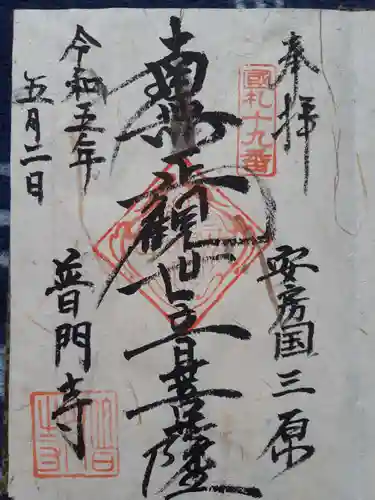 奉拝
國札十九番
安房国三原
南無正観世音菩薩
普門寺
令和五年
五月二日